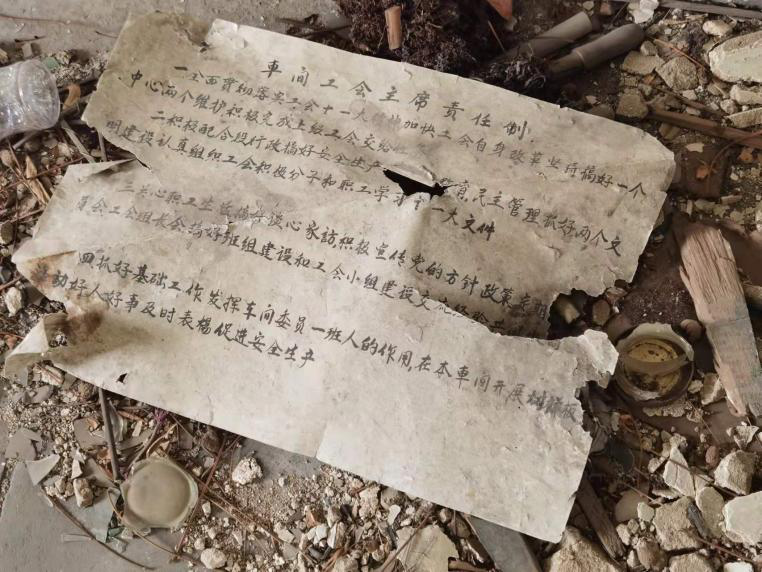 車间工会主席责任制
一全面貫彻落实工会十一大 加快工会自身改革坚持搞好一个
中心两个维护积极完成上级工会交给
二积极配合段行政搞好安全生产 育,民主管理抓好两个文
明建设认真组织工会积极分子和职工学习十一大文件
三关心职工生活搞好谈心家訪积极宣传党的方针政策
工会组长会搞好班组建设和工会小组建设交流经验
四抓好基础工作发挥车间委员一班人的作用,在本車间开展
好人好事及时表楊促进安全生产